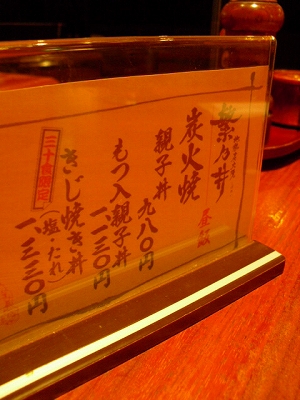 葉乃井
昼献
炭火焼
親子丼 九八〇円
もつ入親子丼
一、一三〇円
三十食限定
きじ焼き丼
(塩・たれ)
一、三三〇円